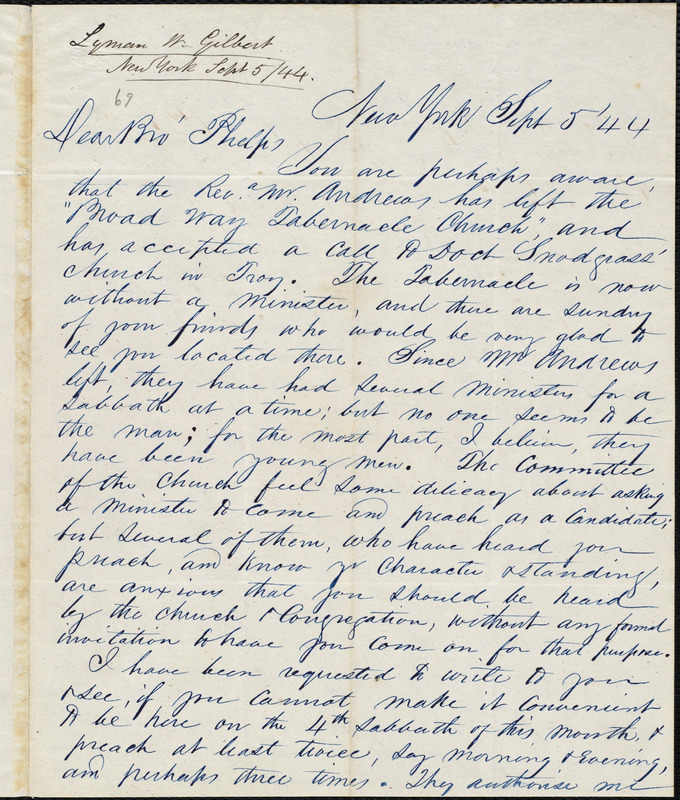 Lyman W. Gilbert
New York Sept 5/44.
69
New York Sept 5 '44
Dear Bro' Phelps
You are perhaps aware,
that the Rev.d Mr. Andrews has left the
"Broad Way Tabernacle Church," and
has accepted a call to Doct Snodgrass'
church in Troy. The Tabernacle is now
without a Minister, and there are sundry
of your friends who would be very glad to
see you located there. Since Mr Andrews
left, they have had several Ministers for a
Sabbath at a time; but no one seems to be
the man; for the most part, I believe, they
have been young men. The Committee
of the Church feel some delicacy about asking
a Minister to come and preach as a Candidate;
but several of them, who have heard you
preach, and know yr Character & standing,
are anxious that you should be heard
by the Church & Congregation, without any formal
invitation to have you come on for that purpose.
I have been requested to write to you
& see, if you cannot make it convenient
to be here on the 4th Sabbath of this month, &
preach at least twice, say morning & Evening,
and perhaps three times. They authorise me